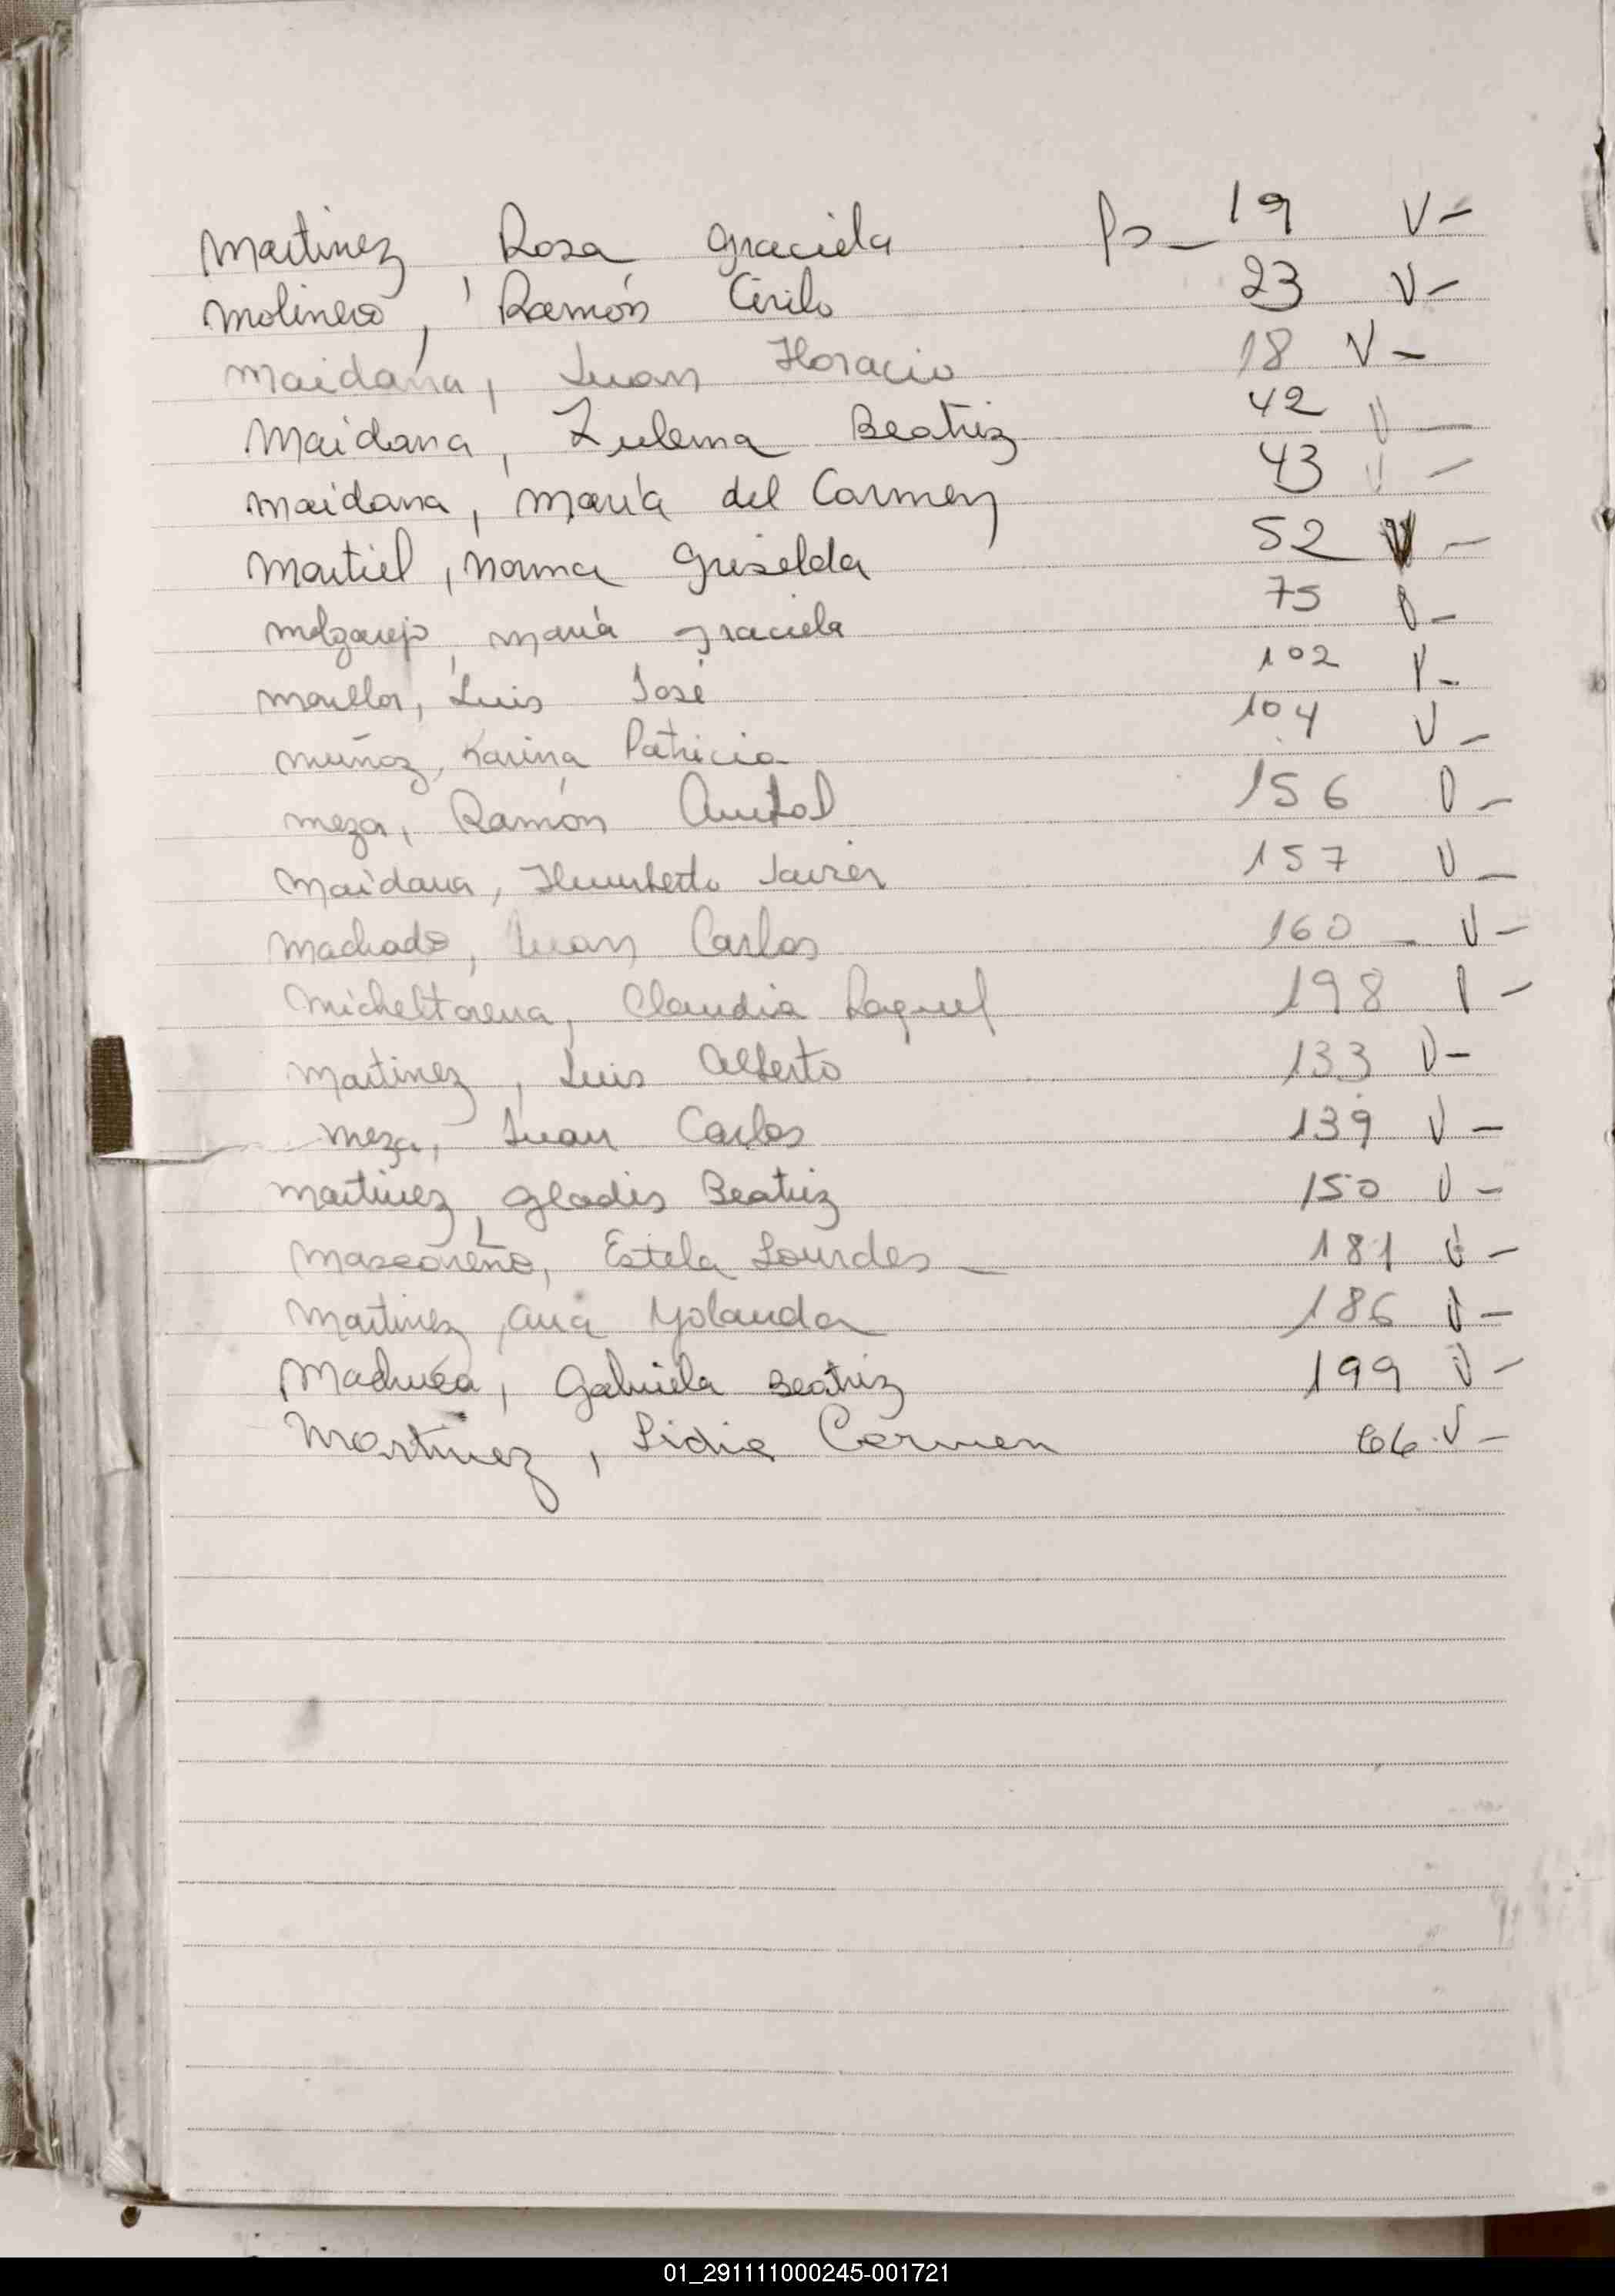 Martinez, Rosa Graciela Ps_ 19 V-
Molinero, Ramón Cirilo 23 V-
Maidana, Juan Horacio 18 V-
Maidana, Zulema Beatriz 42 V-
Maidana, María del Carmen 43 V-
Martiel, Norma Griselda 52 V-
Melgarejo, María Graciela 75 V-
Luis José 102 V-
Muñoz, Karina Patricia 104 V-
Meza, Ramón 156 V-
Maidana, Humberto Javier 157 V-
Machado, Juan Carlos 160 - V-
Micheltorena, Claudia Raquel 198 V-
Martinez, Luis Alberto 133 V-
Meza, Juan Carlos 139 V-
Martinez, Gladis Beatriz 150 V-
Mascareño, Estela Lourdes - 181 V-
Martinez, Ana Yolanda 186 V-
Machuca, Gabriela Beatriz 199 V-
Martinez, Lidia Carmen 66 V-
01_291111000245-001721